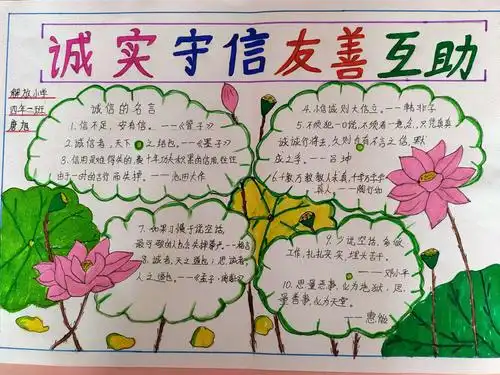 诚实守信友善互助
解放小学
四年一班
诚信的名言
1.信不足,安有信。——《管子》
2.诚信者,天下之结也。——《墨子》
3.信用是难得失的,费十年功夫积累的信用,往往
由于一时的言行而失掉。——池田大作
4.小信诚则大信立。——韩非子
5.不须犯一口说,不须着一意念,只凭真真
诚诚行将去,久则自有不言之信,默
成之孚。——吕坤
6.千教万教教人求真,千学万学学
真人——陶行知
7.如果习惯于说空话,
8.诚者,天之道也;思诚者,
人之道也。——《孟子·离娄》
9.少说空话,多做
工作,扎扎实实,埋头苦干。
——邓小平
10.思量恶事,化为地狱,思
量善事,化为天堂。
——惠能